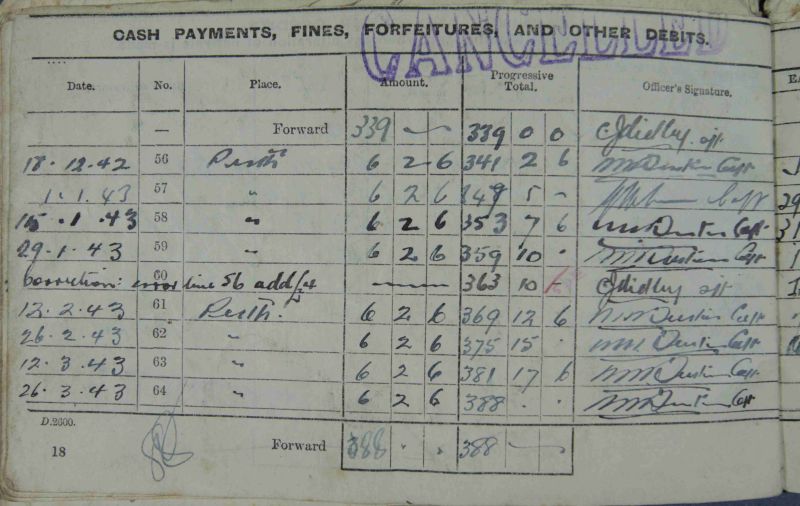 CASH PAYMENTS, FINES, FORFEITURES, AND OTHER DEBITS.
CANCELLED
Date. No. Place. Amount. Progressive Total. Officer's Signature.
— Forward 339 - — 339 0 0
18.12.42 56 Perth 6 2 6 341 2 6 Capt
1.1.43 57 " 6 2 6 5 - Capt
15.1.43 58 " 6 2 6 353 7 6 Capt
29.1.43 59 " 6 2 6 359 10 . Capt
60
Correction: error line 56 add £4 — 363 10 -
12.2.43 61 Perth. 6 2 6 369 12 6 Capt
26.2.43 62 " 6 2 6 375 15 . Capt
12.3.43 63 " 6 2 6 381 17 6 Capt
26.3.43 64 " 6 2 6 388 . . Capt
D.2600.
18 Forward 388 . . 388 —